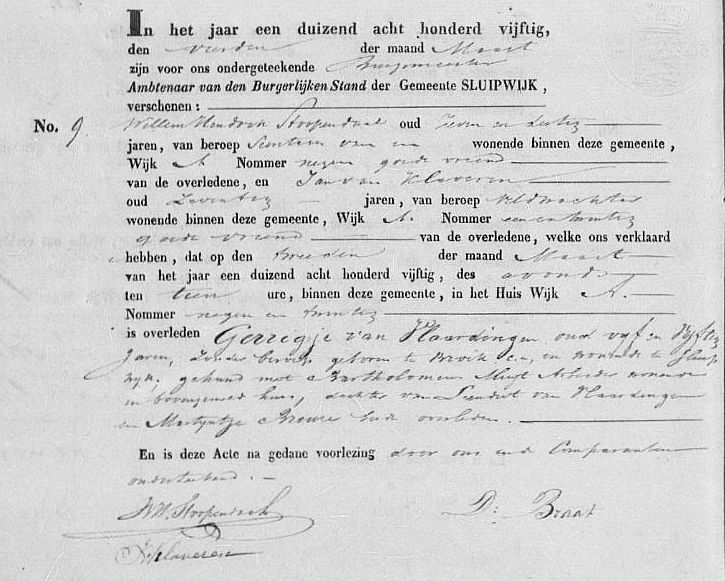 In het jaar een duizend acht honderd vijftig,
den vierden der maand Maart
zijn voor ons ondergeteekende Burgemeester
Ambtenaar van den Burgerlijken Stand der Gemeente SLUIPWIJK,
verschenen:
No. 9. Willem Hendrik Stoopendaal oud zeven en
jaren, van beroep wonende binnen deze gemeente,
Wijk A Nommer negen goede vriend
van de overledene, en Jan van Klaveren
oud Zeventig jaren, van beroep veldwachter
wonende binnen deze gemeente, Wijk A. Nommer
goede vriend van de overledene, welke ons verklaard
hebben, dat op den tweeden der maand Maart
van het jaar een duizend acht honderd vijftig, des avonds
ten tien ure, binnen deze gemeente, in het Huis Wijk A.
Nommer negen en
is overleden Gerregje van Vlaardingen oud vyf en Vyftig
Jaren, Zonder beroep geboren te en woonende te Sluip
wyk, gehuwd met Bartholomeus Arbeider woonende
in huis, dochter van Leendert van Vlaardingen
en Martyntje beide overleden.
En is deze Acte na gedane voorlezing door ons en de Comparanten
onderteekend.
WH. Stoopendaal D: Braat
J v Klaveren